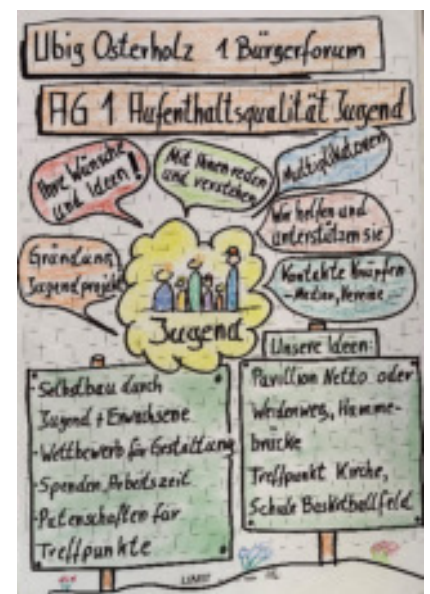 Ubig Osterholz 1 Bürgerforum
AG 1 Aufenthaltsqualität Jugend
Ihre Wünsche
und Ideen!
Mit Ihnen reden
und verstehen
Multiplikatoren
Wir helfen und
unterstützen sie
Gründung
Jugendprojekt
Kontakte Knüpfen
- Medien, Vereine -
Jugend
Unsere Ideen:
- Selbstbau durch
Jugend + Erwachsene
- Wettbewerb für Gestaltung
- Spenden, Arbeitszeit
- Patenschaften für
Treffpunkte
Pavillion Netto oder
Weidenweg, Hamme-
brücke
Treffpunkt Kirche,
Schule Basketballfeld